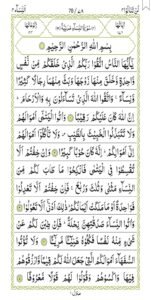 بِسْمِ اللّٰهِ الرَّحْمٰنِ الرَّحِيْمِ
يٰٓاَيُّهَا النَّاسُ اتَّقُوْا رَبَّكُمُ الَّذِيْ خَلَقَكُمْ مِّنْ نَّفْسٍ
وَّاحِدَةٍ وَّخَلَقَ مِنْهَا زَوْجَهَا وَبَثَّ مِنْهُمَا رِجَالًا كَثِيْرًا
وَّنِسَآءً ۚ وَاتَّقُوا اللّٰهَ الَّذِيْ تَسَآءَلُوْنَ بِهٖ وَالْاَرْحَامَ ؕ
اِنَّ اللّٰهَ كَانَ عَلَيْكُمْ رَقِيْبًا وَاٰتُوا الْيَتٰمٰٓى اَمْوَالَهُمْ
وَلَا تَتَبَدَّلُوا الْخَبِيْثَ بِالطَّيِّبِ وَلَا تَاْكُلُوْٓا اَمْوَالَهُمْ
اِلٰٓى اَمْوَالِكُمْ ؕ اِنَّهٗ كَانَ حُوْبًا كَبِيْرًا وَاِنْ خِفْتُمْ اَلَّا
تُقْسِطُوْا فِي الْيَتٰمٰى فَانْكِحُوْا مَا طَابَ لَكُمْ مِّنَ النِّسَآءِ
مَثْنٰى وَثُلٰثَ وَرُبٰعَ ۚ فَاِنْ خِفْتُمْ اَلَّا تَعْدِلُوْا
فَوَاحِدَةً اَوْ مَا مَلَكَتْ اَيْمَانُكُمْ ؕ ذٰلِكَ اَدْنٰٓى اَلَّا تَعُوْلُوْا
وَاٰتُوا النِّسَآءَ صَدُقٰتِهِنَّ نِحْلَةً ؕ فَاِنْ طِبْنَ لَكُمْ عَنْ
شَيْءٍ مِّنْهُ نَفْسًا فَكُلُوْهُ هَنِيْٓئًا مَّرِيْٓئًا وَلَا تُؤْتُوا
السُّفَهَآءَ اَمْوَالَكُمُ الَّتِيْ جَعَلَ اللّٰهُ لَكُمْ قِيٰمًا وَّارْزُقُوْهُمْ
فِيْهَا وَاكْسُوْهُمْ وَقُوْلُوْا لَهُمْ قَوْلًا مَّعْرُوْفًا